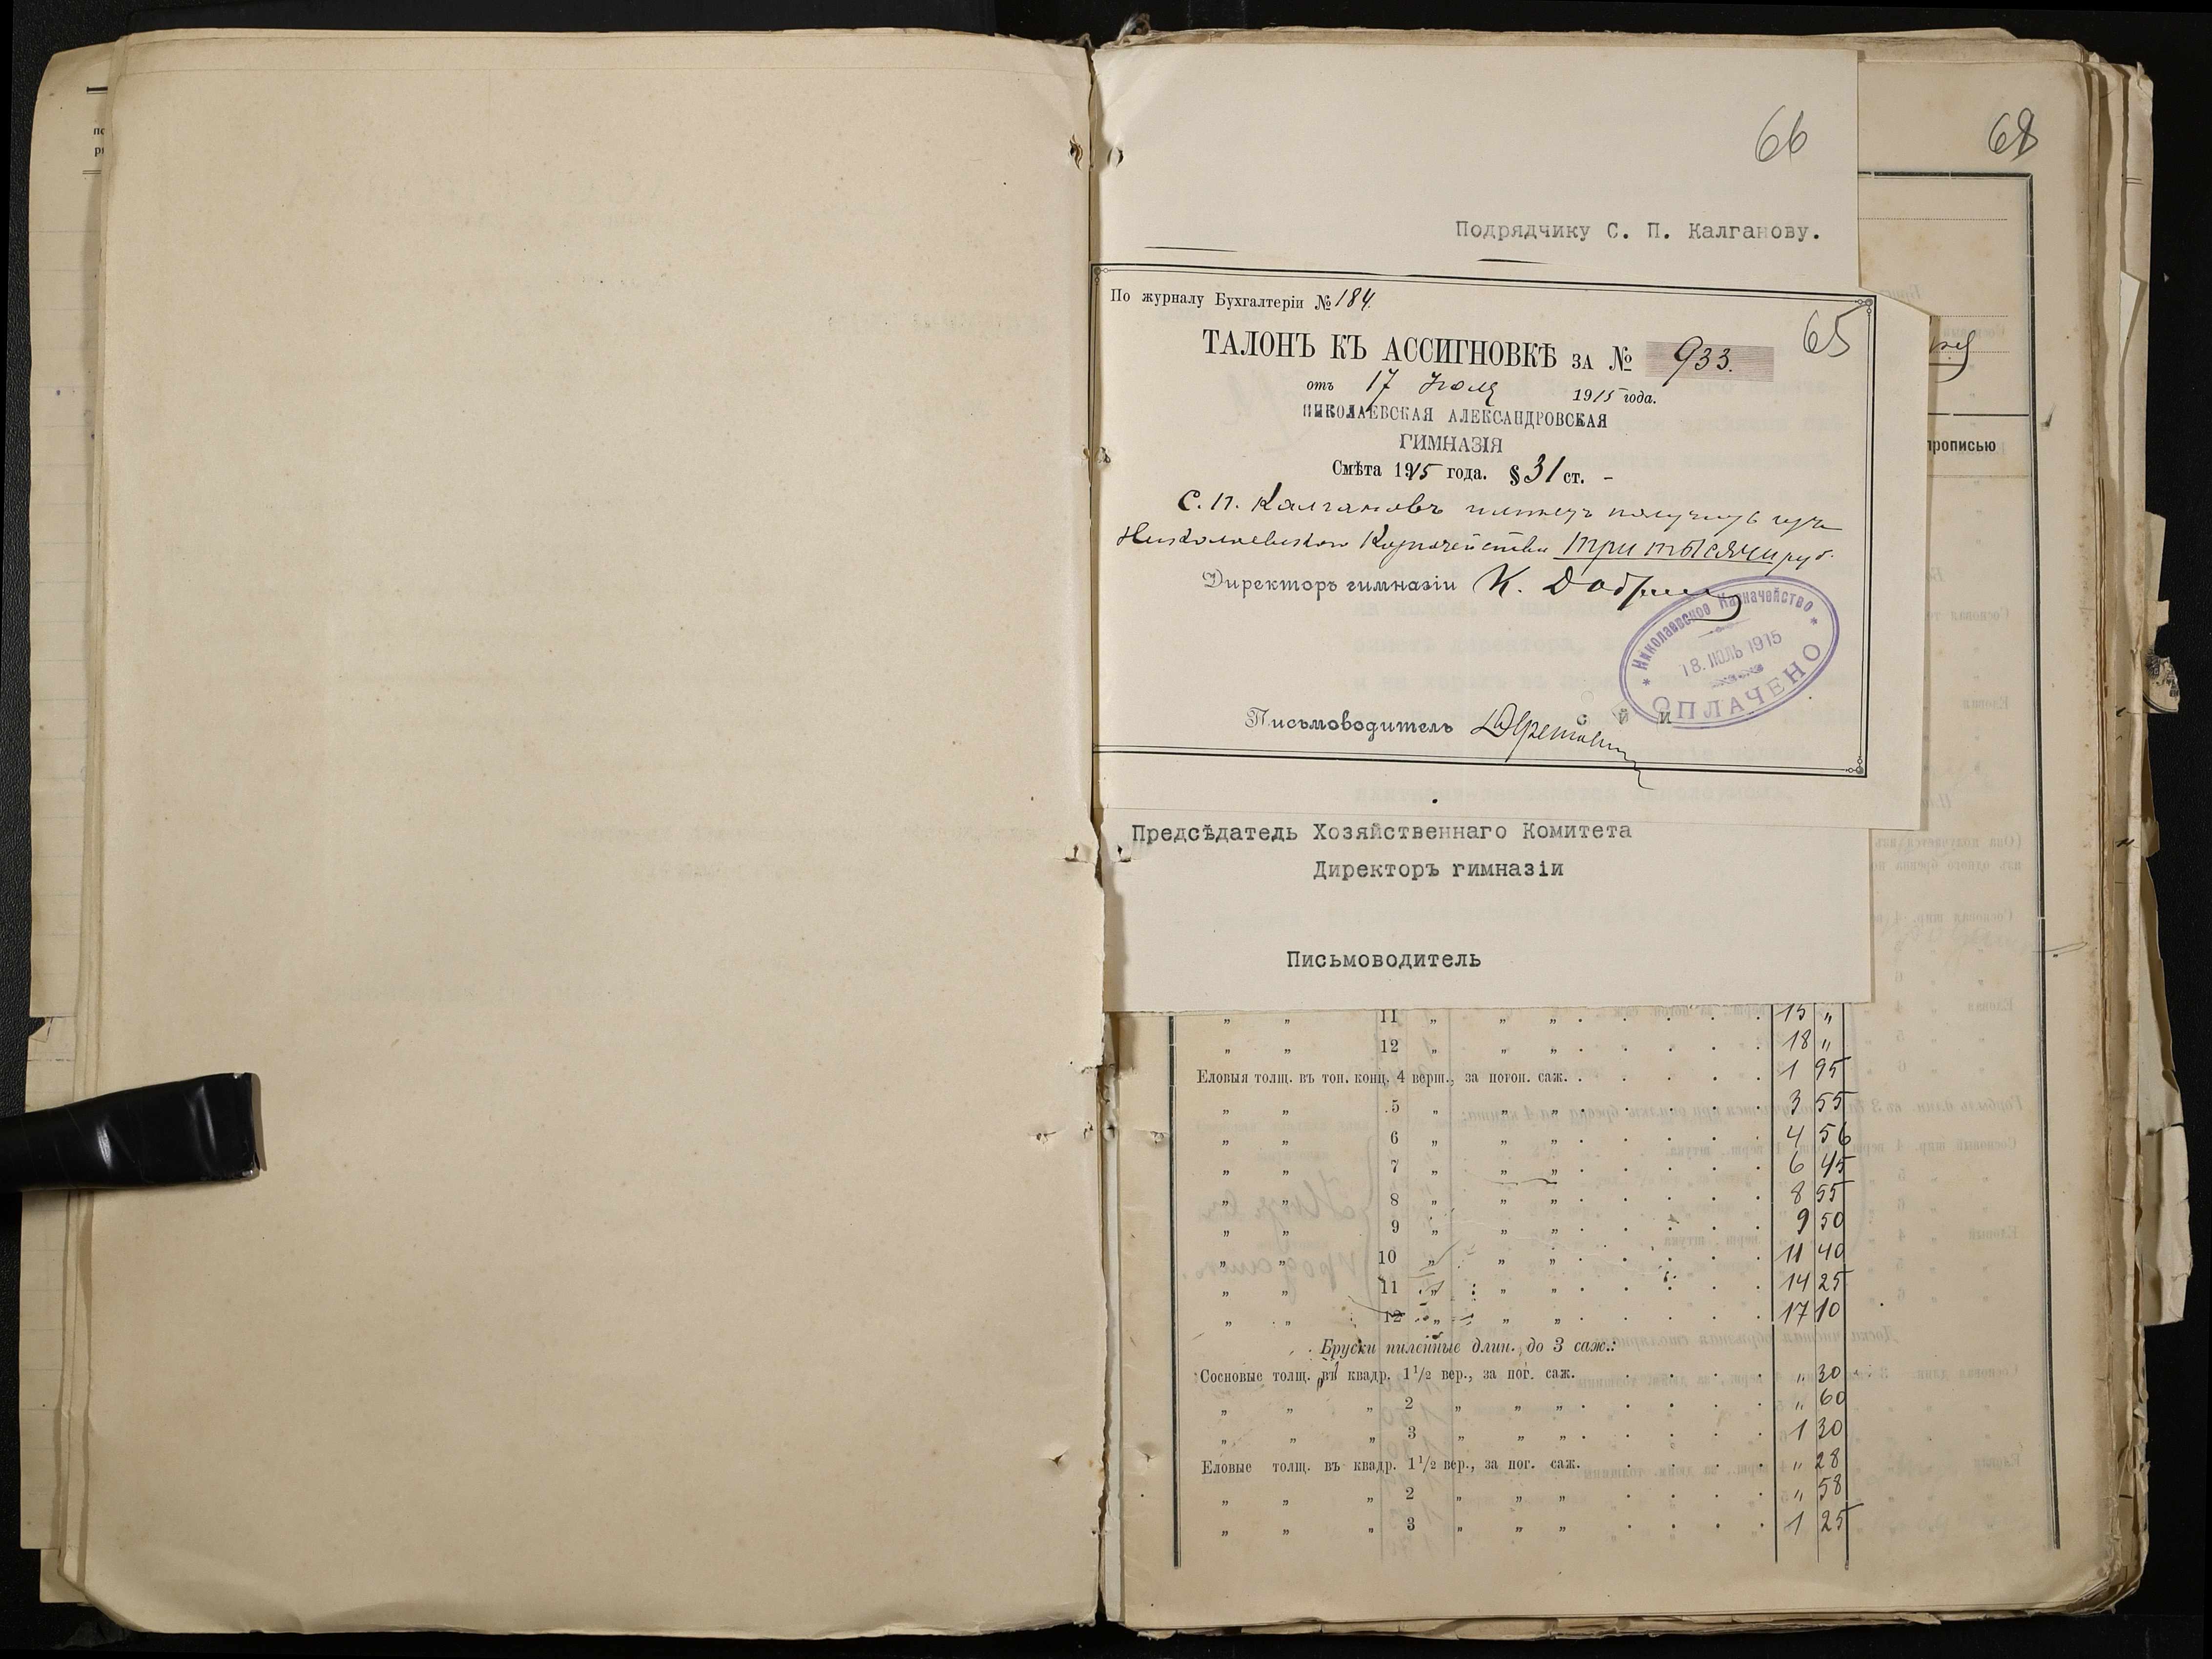 66
68
Подрядчику С. П. Калганову.
По журналу Бухгалтеріи № 184.
65
ТАЛОНЪ КЪ АССИГНОВКѢ ЗА № 933.
отъ 17 Іюля 1915 года.
НИКОЛАЕВСКАЯ АЛЕКСАНДРОВСКАЯ
ГИМНАЗІЯ
Смѣта 1915 года. § 31 ст. -
С. П. Калгановъ имѣетъ получить изъ
Николаевскаго Казначейства три тысячи руб.
Директоръ гимназіи К.
* Николаевское Казначейство *
18. ІЮЛЬ 1915
ОПЛАЧЕНО
Письмоводитель
прописью
Предсѣдатель Хозяйственнаго Комитета
Директоръ гимназіи
Письмоводитель
„ „ 11 „ „ „ 15 „
„ „ 12 „ „ „ 18 „
Еловыя толщ. въ тон. конц. 4 верш., за погон. саж. 1 95
„ „ 5 „ „ „ 3 55
„ „ 6 „ „ „ 4 56
„ „ 7 „ „ „ 6 45
„ „ 8 „ „ „ 8 55
„ „ 9 „ „ „ 9 50
„ „ 10 „ „ „ 11 40
„ „ 11 „ „ „ 14 25
„ „ 12 „ „ „ 17 10
Бруски пиленные длин. до 3 саж.:
Сосновые толщ. въ квадр. 1 1/2 вер., за пог. саж. „ 30
„ „ „ 2 „ „ „ „ 60
„ „ „ 3 „ „ „ 1 30
Еловые толщ. въ квадр. 1 1/2 вер., за пог. саж. „ 28
„ „ „ 2 „ „ „ „ 58
„ „ „ 3 „ „ „ 1 25